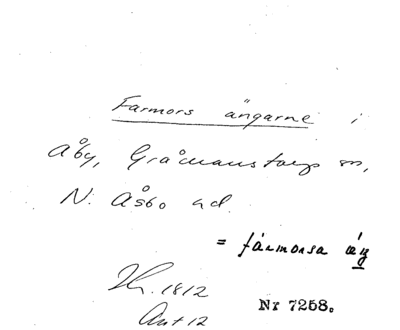 Farmors ängarne i
Åby, Gråmanstorps sn,
N. Åsbo hd.
= fármorsa
1812
Akt 12
Nr 7258.